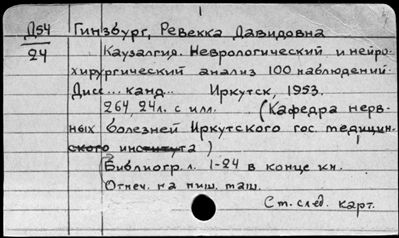 Д54 Гинзбург, Ревекка Давидовна
24 Каузалгия. Неврологический и нейро-
хирургический анализ 100 наблюдений.
Дисс... канд... Иркутск, 1953.
264, 24л. с илл. (Кафедра нерв-
ных болезней Иркутского гос. медицин-
ского института)
(Библиогр. л. 1-24 в конце кн.
Отпеч. на пиш. маш.
См. след. карт.